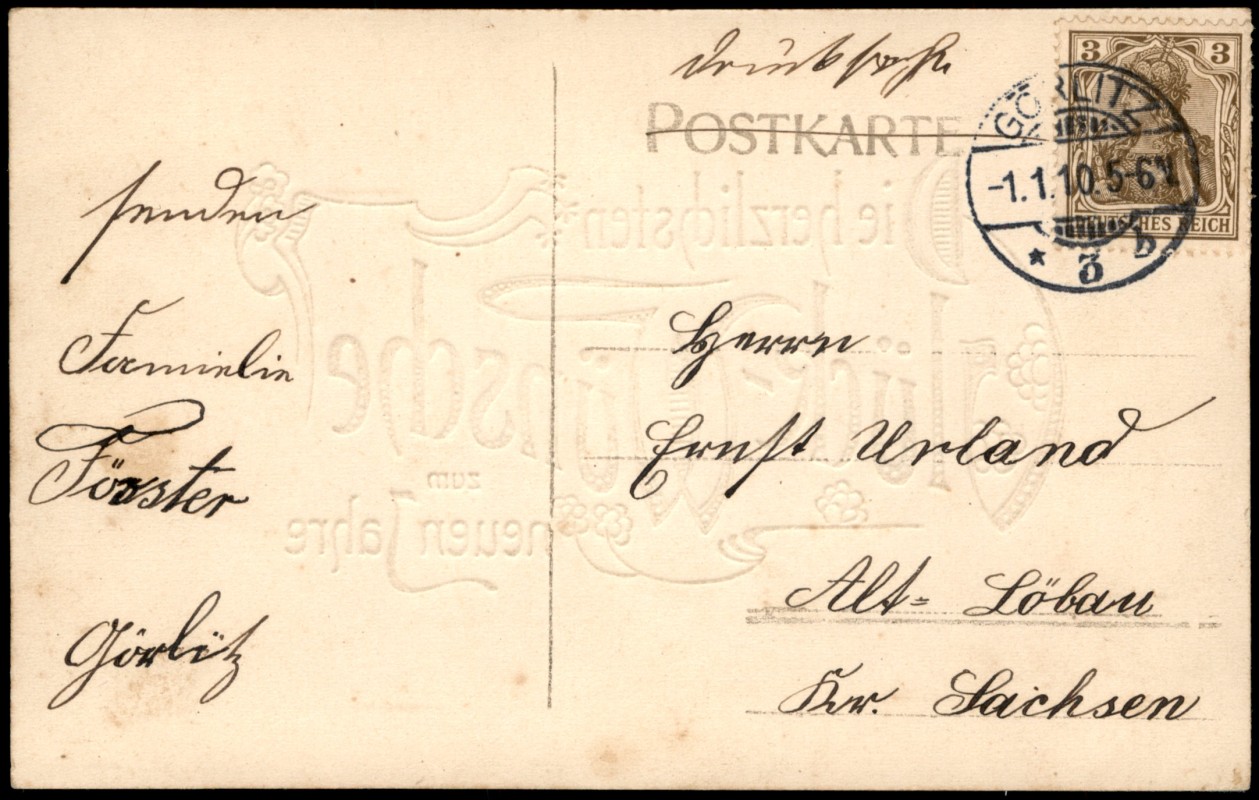 Drucksache
POSTKARTE
3 3
DEUTSCHES REICH
GÖRLITZ
-1.1.10.5-6N.
* 3 b
senden
Familie
Förster
Görlitz
Herrn
Ernst Urland
Alt-Löbau
Kr. Sachsen
Die herzlichsten
Glück-Wünsche
zum
neuen Jahre